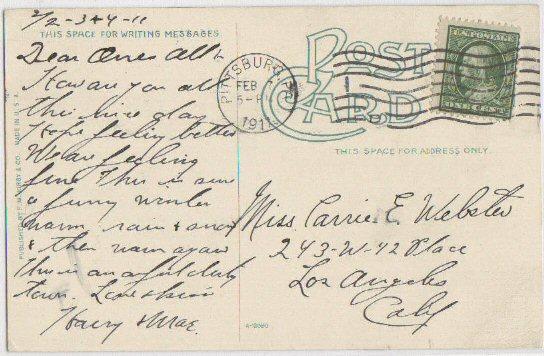 2/2-3+4-11
THIS SPACE FOR WRITING MESSAGES.
Dear Ones All:
How are you all
this nice day
Hope feeling better
We are feeling
fine This is sure
a funny winter
warm rain & snow
& then warm again
this is an awful dirty
town.
Harry & Mae.
PITTSBURG, PA.
FEB
5-P
1911
POST CARD
U.S. POSTAGE
ONE CENT
THIS SPACE FOR ADDRESS ONLY.
Miss. Carrie E. Webster
243-W-42 Place
Los Angeles
Calf
A-12090
MADE IN U.S.A.